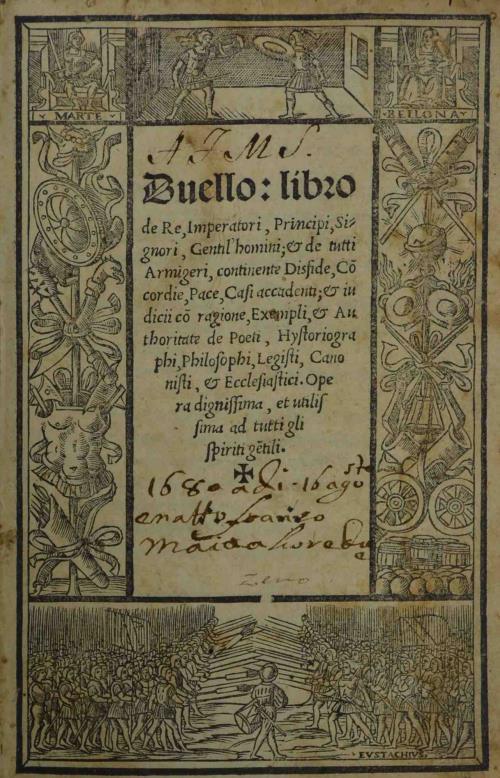 MARTE
BELLONA
A I M S.
Duello: libro
de Re, Imperatori, Principi, Si-
gnori, Gentil'homini; & de tutti
Armigeri, continente Disfide, Cõ
cordie, Pace, Casi accadenti; & iu
dicii cõ ragione, Exempli, & Au
thoritate de Poeti, Hystoriogra
phi, Philosophi, Legisti, Cano
nisti, & Ecclesiastici. Ope
ra dignissima, et utilis
sima ad tutti gli
spiriti gẽtili.
1680 adi · 16 agoste
Zeno
EVSTACHIVS.